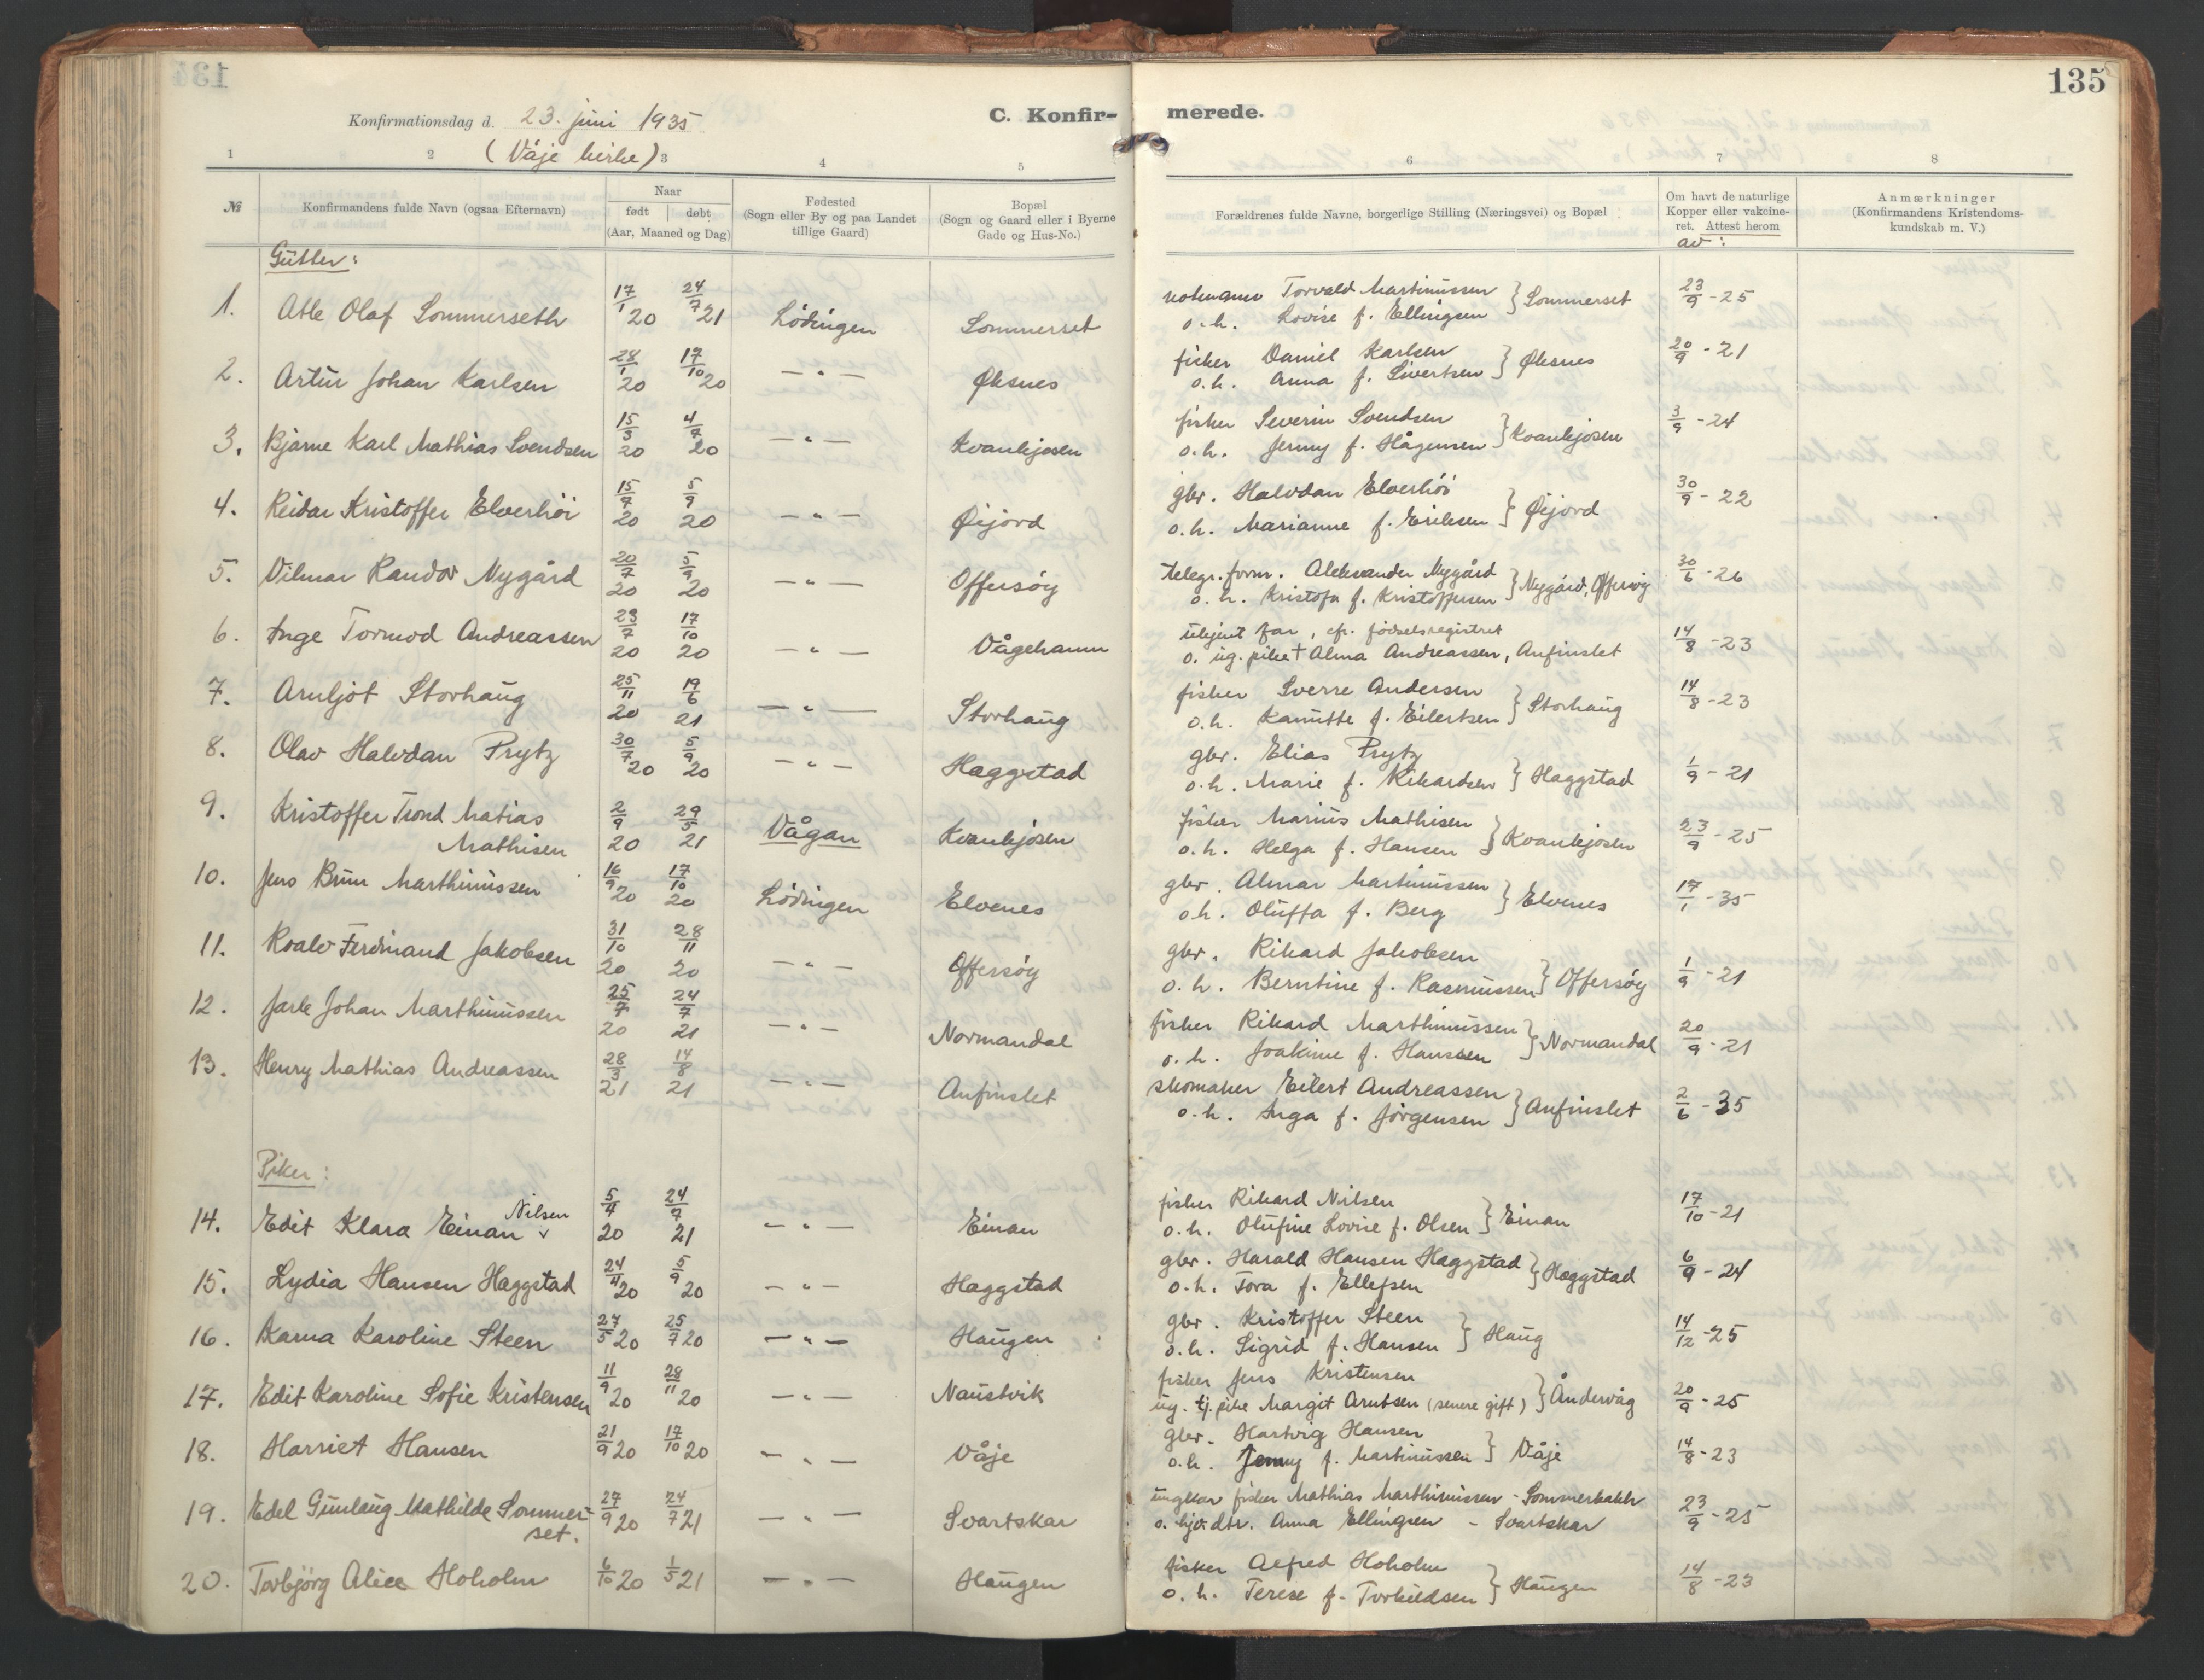 135
Konfirmationsdag d. 23. juni 1935
(Våje kirke)
C. Konfirmerede.
1 2 3 4 5 6 7 8
№ Konfirmandens fulde Navn (ogsaa Efternavn) Naar født døbt (Aar, Maaned og Dag) Fødested (Sogn eller By og paa Landet tillige Gaard) Bopæl (Sogn og Gaard eller i Byerne Gade og Hus-No.) Forældrenes fulde Navne, borgerlige Stilling (Næringsvei) og Bopæl Om havt de naturlige Kopper eller vakcineret. Attest herom av: Anmærkninger (Konfirmandens Kristendomskundskab m. V.)
Gutter:
1. Atle Olaf Sommerseth 17/1 20 24/7 21 Lödingen Sommerset Torvald Martinussen
o.h. Lovise f. Ellingsen } Sommerset 23/9 - 25
2. Artur Johan Karlsen 28/1 20 17/10 20 — " — Øksnes fisker Daniel Karlsen
o.h. Anna f. Sivertsen } Øksnes 20/9 - 21
3. Bjarne Karl Mathias Svendsen 15/3 20 4/7 20 — " — Kvankjosen fisker Severin Svendsen
o.h. Jenny f. Hågensen } Kvankjosen 3/9 - 24
4. Reidar Kristoffer Elverhöi 15/7 20 5/9 20 — " — Øijord gbr. Halvdan Elverhöi
o.h. Marianne f. Eriksen } Øijord 30/9 - 22
5. Vilmar Randor Nygård 20/7 20 5/9 20 — " — Offersöy telegr.form. Aleksander Nygård
o.h. Kristofa f. Kristoffersen } Nygård, Offersöy 30/6 - 26
6. Inge Tormod Andreassen 23/7 20 17/10 20 — " — Vågehamn ukjent far, cfr. födselsregistret
o. ug. pike † Alma Andreassen, Anfinslet 14/8 - 23
7. Arnljot Storhaug 25/11 20 19/6 21 — " — Storhaug fisker Sverre Andersen
o.h. Kanutte f. Eilertsen } Storhaug 14/8 - 23
8. Olav Halvdan Prytz 30/7 20 5/9 20 — " — Haggstad gbr. Elias Prytz
o.h. Marie f. Rikardsen } Haggstad 1/9 - 21
9. Kristoffer Trond Matias
Mathisen 2/9 20 29/5 21 Vågan Kvankjosen fisker Marius Mathisen
o.h. Helga f. Hansen } Kvankjosen 23/9 - 25
10. Jens Brun Marthinussen 16/9 20 17/10 20 Lödingen Elvenes gbr. Almar Martinussen
o.h. Oluffa f. Berg } Elvenes 17/1 - 35
11. Roald Ferdinand Jakobsen 31/10 20 28/11 20 — " — Offersöy gbr. Rikard Jakobsen
o.h. Berntine f. Rasmussen } Offersöy 1/9 - 21
12. Jarle Johan Marthinussen 25/7 20 24/7 21 — " — Normandal fisker Rikard Marthinussen
o.h. Joakine f. Hanssen } Normandal 20/9 - 21
13. Henry Mathias Andreassen 28/3 21 14/8 21 — " — Anfinslet skomaker Eilert Andreassen
o.h. Inga f. Jörgensen } Anfinslet 2/6 - 35
Piker:
14. Edit Klara Einan Nilsen 5/4 20 24/7 21 — " — Einan fisker Rikard Nilsen
o.h. Olufine Lovise f. Olsen } Einan 17/10 - 21
15. Lydia Hansen Haggstad 24/4 20 5/9 20 — " — Haggstad gbr. Harald Hansen Haggstad
o.h. Tora f. Ellefsen } Haggstad 6/9 - 24
16. Karna Karoline Steen 27/5 20 25/7 20 — " — Haugen gbr. Kristoffer Steen
o.h. Sigrid f. Hansen } Haug 14/12 - 25
17. Edit Karoline Sofie Kristensen 11/9 20 28/11 20 — " — Naustvik fisker Jens Kristensen
ug. tj. pike Margit Arntsen (senere gift) } Åndervåg 20/9 - 25
18. Harriet Hansen 21/9 20 17/10 20 — " — Våje gbr. Hartvig Hansen
o.h. Jenny f. Martinussen } Våje 14/8 - 23
19. Edel Gunlaug Mathilde Sommerset. 27/9 20 24/7 21 — " — Svartskar ungkar fisker Mathias Marthinussen - Sommerbakk
o. Anna Ellingsen - Svartskar 23/9 - 25
20. Torbjörg Alice Hoholm 6/10 20 1/5 21 — " — Haugen fisker Alfred Hoholm
o.h. Terese f. Torkildsen } Haugen 14/8 - 23